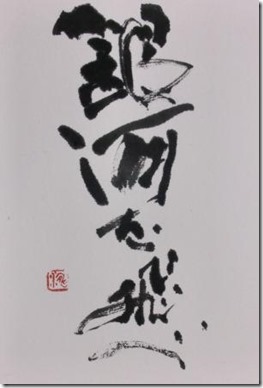 銀河を飛